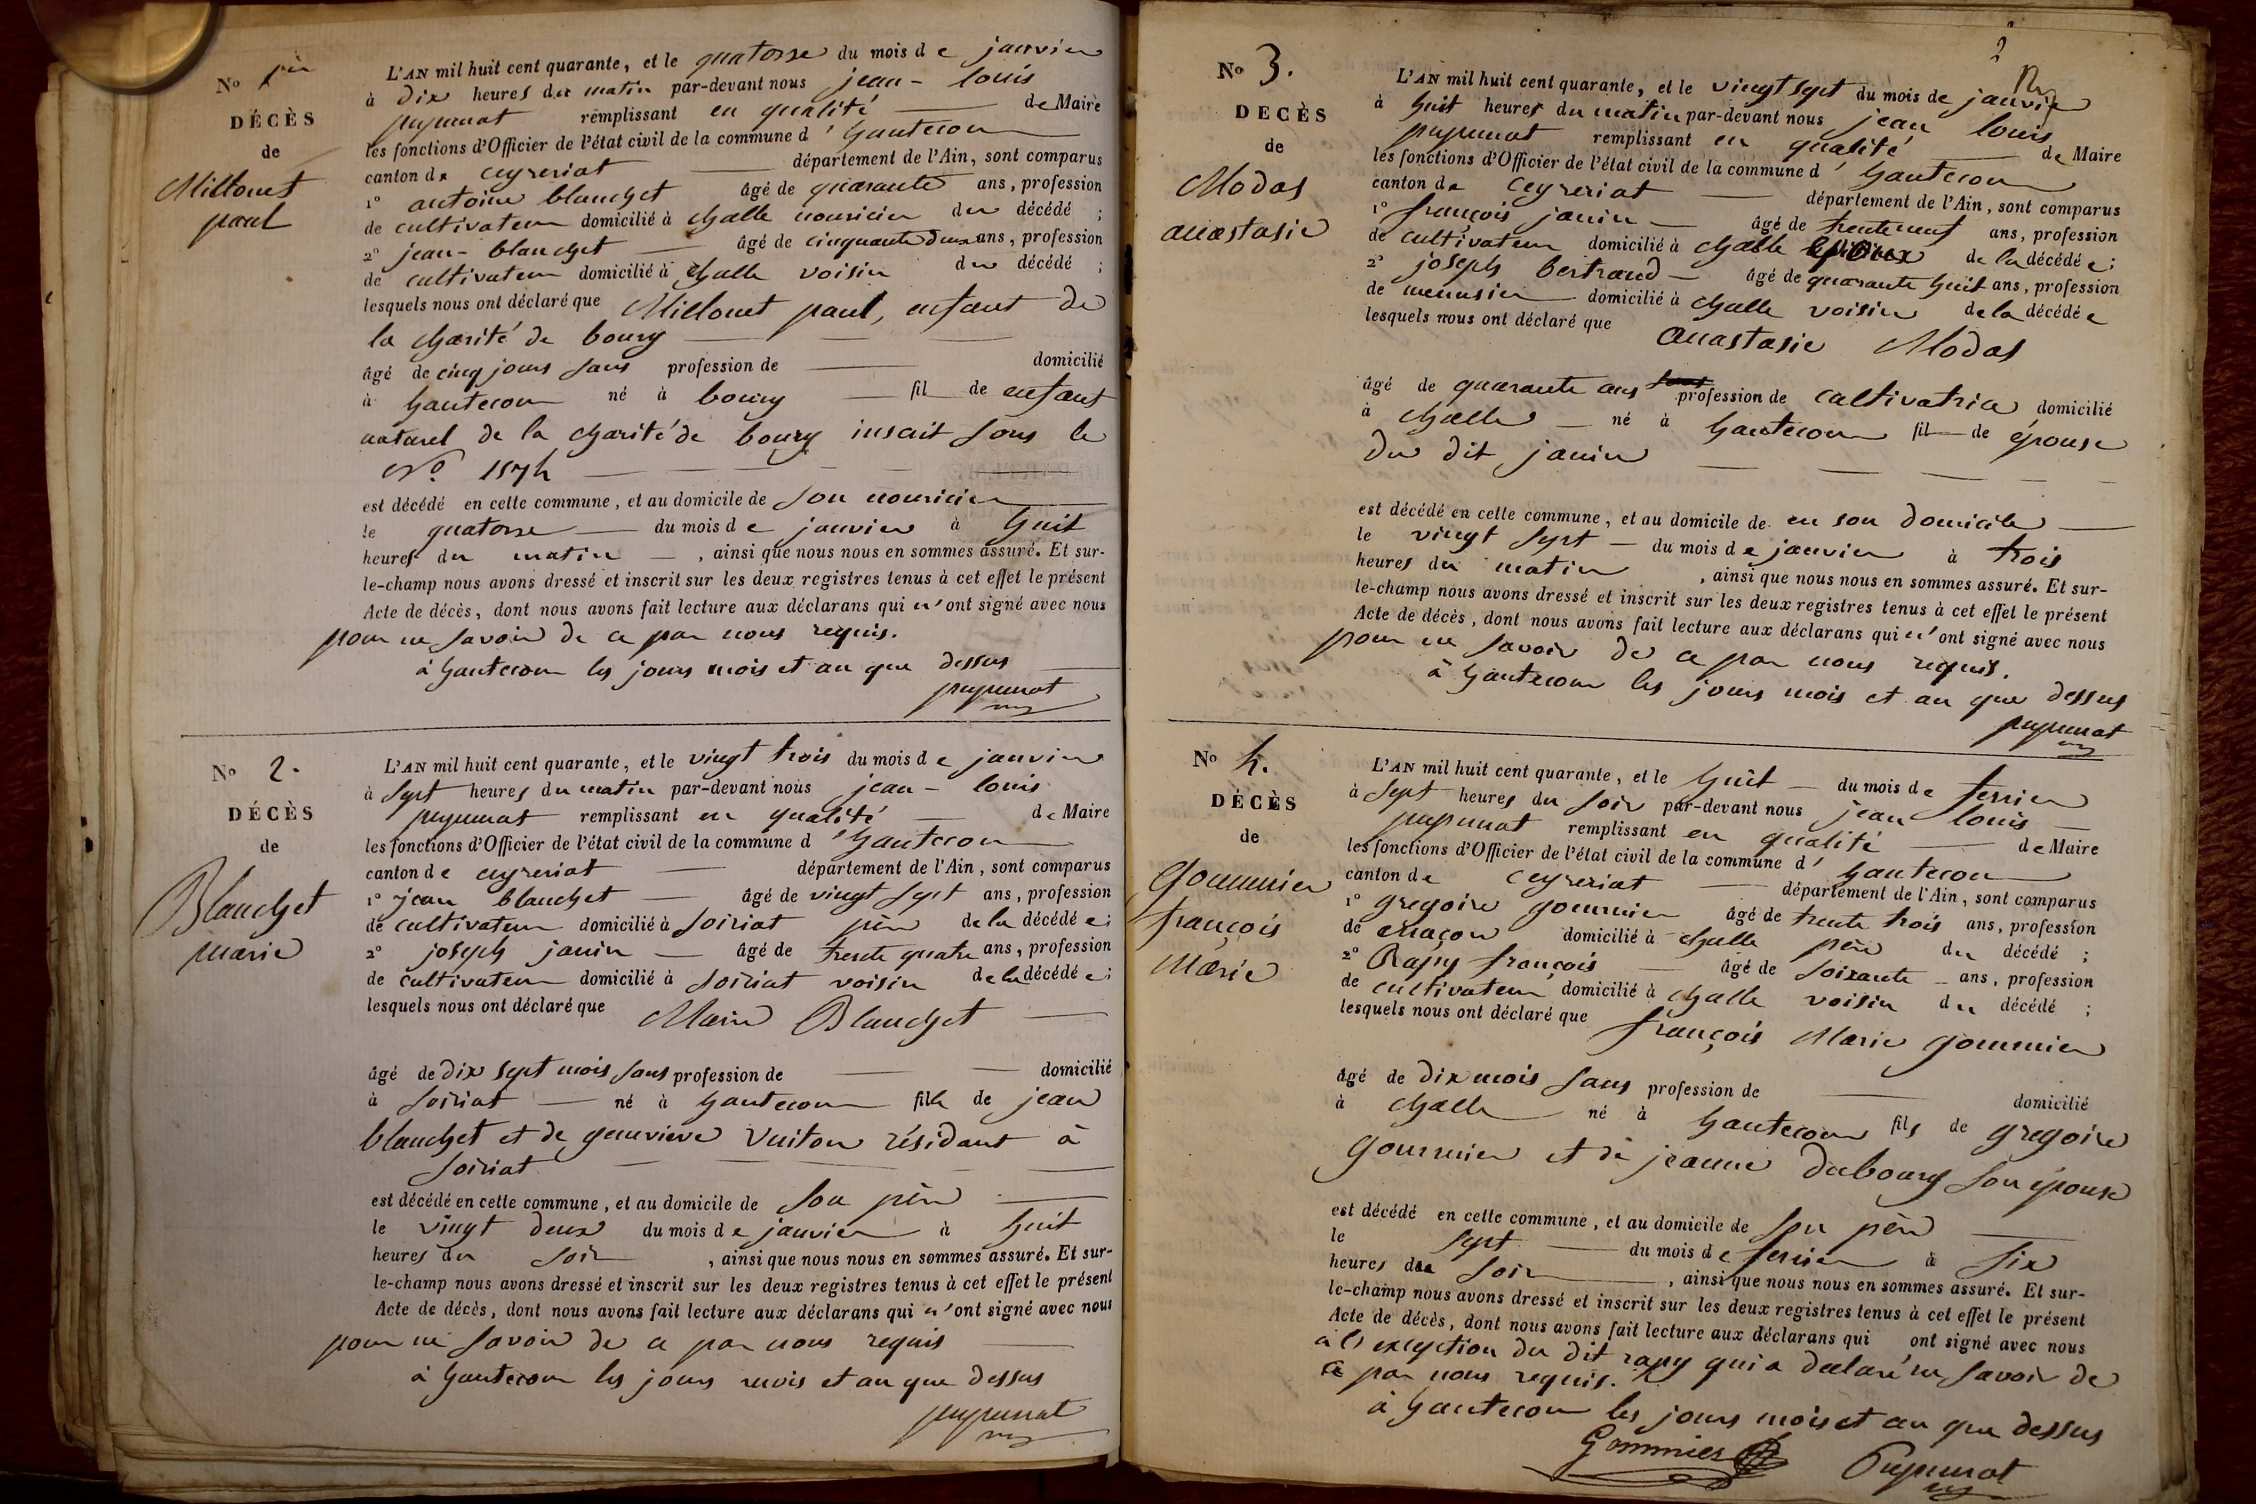 No 1er
DÉCÈS
de
Millonet
paul
L'AN mil huit cent quarante, et le quatorze du mois de janvier
à dix heures du matin par-devant nous jean-louis
puyunat remplissant en qualité de Maire
les fonctions d'Officier de l'état civil de la commune d'hautecour
canton de ceyzeriat département de l'Ain, sont comparus
1° antoine blanchet âgé de quarante ans, profession
de cultivateur domicilié à challe nouricier du décédé ;
2° jean-blanchet âgé de cinquante deux ans, profession
de cultivateur domicilié à challe voisin du décédé ;
lesquels nous ont déclaré que Millonet paul, enfant de
la charité de bourg
âgé de cinq jours sans profession de domicilié
à hautecour né à bourg fil de enfant
naturel de la charité de bourg inscrit sous le
No.
est décédé en cette commune, et au domicile de son nouricier
le quatorze du mois de janvier à huit
heures du matin , ainsi que nous nous en sommes assuré. Et sur-
le-champ nous avons dressé et inscrit sur les deux registres tenus à cet effet le présent
Acte de décès, dont nous avons fait lecture aux déclarans qui n'ont signé avec nous
pour ne savoir de ce par nous requis.
à hautecour les jours mois et an que dessus
puyunat
No 2.
DÉCÈS
de
Blanchet
marie
L'AN mil huit cent quarante, et le vingt trois du mois de janvier
à sept heures du matin par-devant nous jean-louis
puyunat remplissant en qualité de Maire
les fonctions d'Officier de l'état civil de la commune d'hautecour
canton de ceyzeriat département de l'Ain, sont comparus
1° jean blanchet âgé de vingt sept ans, profession
de cultivateur domicilié à soiriat père de la décédée ;
2° joseph janin âgé de trente quatre ans, profession
de cultivateur domicilié à soiriat voisin de la décédée ;
lesquels nous ont déclaré que Marie Blanchet
âgé de dix sept mois sans profession de domicilié
à soiriat né à hautecour fille de jean
blanchet et de genevieve Vuiton résidant à
soiriat
est décédé en cette commune, et au domicile de son père
le vingt deux du mois de janvier à huit
heures du soir , ainsi que nous nous en sommes assuré. Et sur-
le-champ nous avons dressé et inscrit sur les deux registres tenus à cet effet le présent
Acte de décès, dont nous avons fait lecture aux déclarans qui n'ont signé avec nous
pour ne savoir de ce par nous requis
à hautecour les jours mois et an que dessus
puyunat
2
No 3.
DECÈS
de
Modas
anastasie
L'AN mil huit cent quarante, et le vingt sept du mois de janvier
à huit heures du matin par-devant nous jean louis
puyunat remplissant en qualité de Maire
les fonctions d'Officier de l'état civil de la commune d'hautecour
canton de ceyzeriat département de l'Ain, sont comparus
1° françois janin âgé de trente neuf ans, profession
de cultivateur domicilié à challe époux de la décédée ;
2° joseph bertrand âgé de quarante huit ans, profession
de menusier domicilié à challe voisin de la décédée
lesquels nous ont déclaré que anastasie Modas
âgé de quarante ans profession de cultivatrice domicilié
à challe né à hautecour fil de épouse
du dit janin
est décédé en cette commune, et au domicile de en son domicile
le vingt sept du mois de janvier à trois
heures du matin , ainsi que nous nous en sommes assuré. Et sur-
le-champ nous avons dressé et inscrit sur les deux registres tenus à cet effet le présent
Acte de décès, dont nous avons fait lecture aux déclarans qui n'ont signé avec nous
pour ne savoir de ce par nous requis.
à hautecour les jours mois et an que dessus
puyunat
No 4.
DÉCÈS
de
Gommier
françois
Marie
L'AN mil huit cent quarante, et le huit du mois de fevrier
à sept heures du soir par-devant nous jean louis
puyunat remplissant en qualité de Maire
les fonctions d'Officier de l'état civil de la commune d'hautecour
canton de ceyzeriat département de l'Ain, sont comparus
1° gregoire gommier âgé de trente trois ans, profession
de maçon domicilié à challe père du décédé ;
2° Rapy françois âgé de soixante ans, profession
de cultivateur domicilié à challe voisin du décédé ;
lesquels nous ont déclaré que françois Marie gommier
âgé de dix mois sans profession de domicilié
à challe né à hautecour fils de gregoire
gommier et de jeanne dubourg son épouse
est décédé en cette commune, et au domicile de son père
le sept du mois de fevrier à six
heures du soir , ainsi que nous nous en sommes assuré. Et sur-
le-champ nous avons dressé et inscrit sur les deux registres tenus à cet effet le présent
Acte de décès, dont nous avons fait lecture aux déclarans qui ont signé avec nous
à l'exception du dit rapy qui a declaré ne savoir de
ce par nous requis.
à hautecour les jours mois et an que dessus
Gommier Puyunat